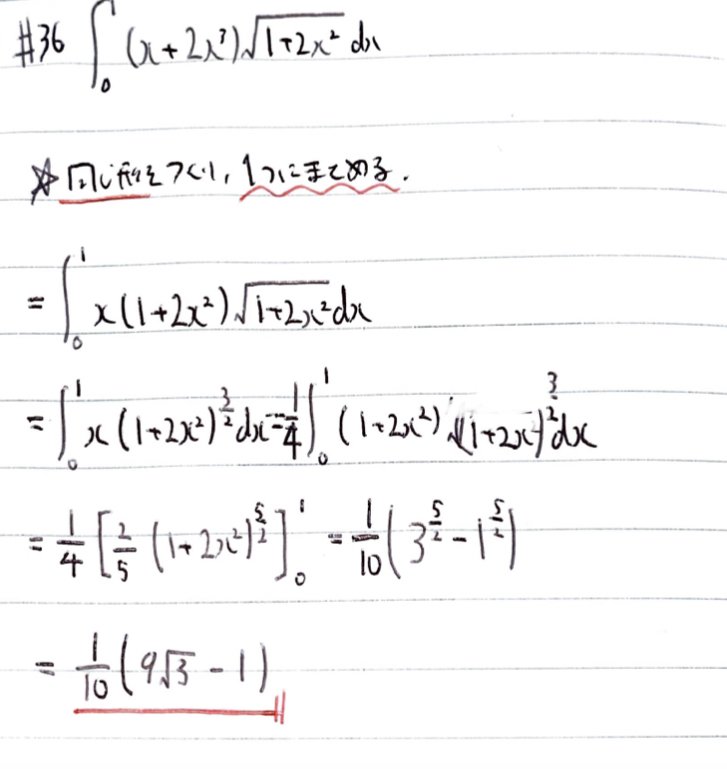 #36 ∫₀ (x+2x³)√(1+2x²) dx
☆ 同じ形をつくり, 1つにまとめる.
= ∫₀¹ x(1+2x²)√(1+2x²) dx
= ∫₀¹ x(1+2x²)^(3/2) dx = 1/4 ∫₀¹ (1+2x²)′(1+2x)^(3/2) dx
= 1/4 [2/5 (1+2x²)^(5/2)]₀¹ = 1/10 (3^(5/2) - 1^(5/2))
= 1/10 (9√3 - 1)